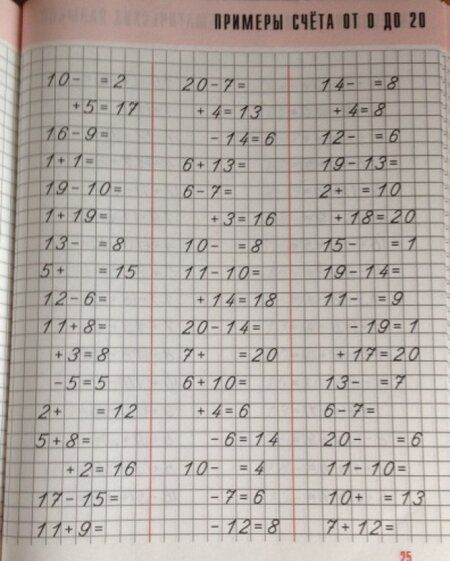 ПРИМЕРЫ СЧЁТА ОТ 0 ДО 20
10- =2
+5=17
16-9=
1+1=
19-10=
1+19=
13- =8
5+ =15
12-6=
11+8=
+3=8
-5=5
2+ =12
5+8=
+2=16
17-15=
11+9=
20-7=
+4=13
-14=6
6+13=
6-7=
+3=16
10- =8
11-10=
+14=18
20-14=
7+ =20
6+10=
+4=6
-6=14
10- =4
-7=6
-12=8
14- =8
+4=8
12- =6
19-13=
2+ =10
+18=20
15- =1
19-14=
11- =9
-19=1
+17=20
13- =7
6-7=
20- =6
11-10=
10+ =13
7+12=
25